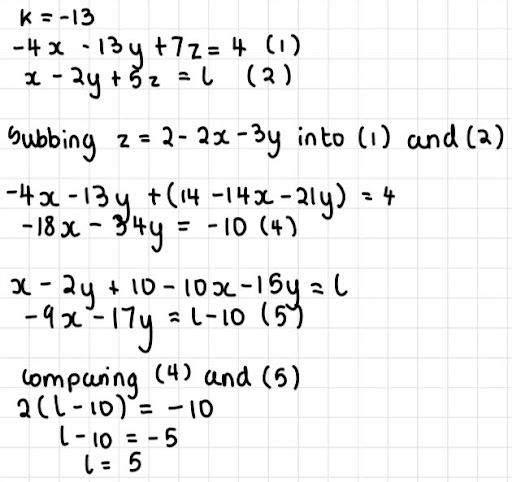 k = -13
-4x - 13y + 7z = 4 (1)
x - 2y + 5z = l (2)
Subbing z = 2 - 2x - 3y into (1) and (2)
-4x - 13y + (14 - 14x - 21y) = 4
-18x - 34y = -10 (4)
x - 2y + 10 - 10x - 15y = l
-9x - 17y = l - 10 (5)
Comparing (4) and (5)
2(l - 10) = -10
l - 10 = -5
l = 5